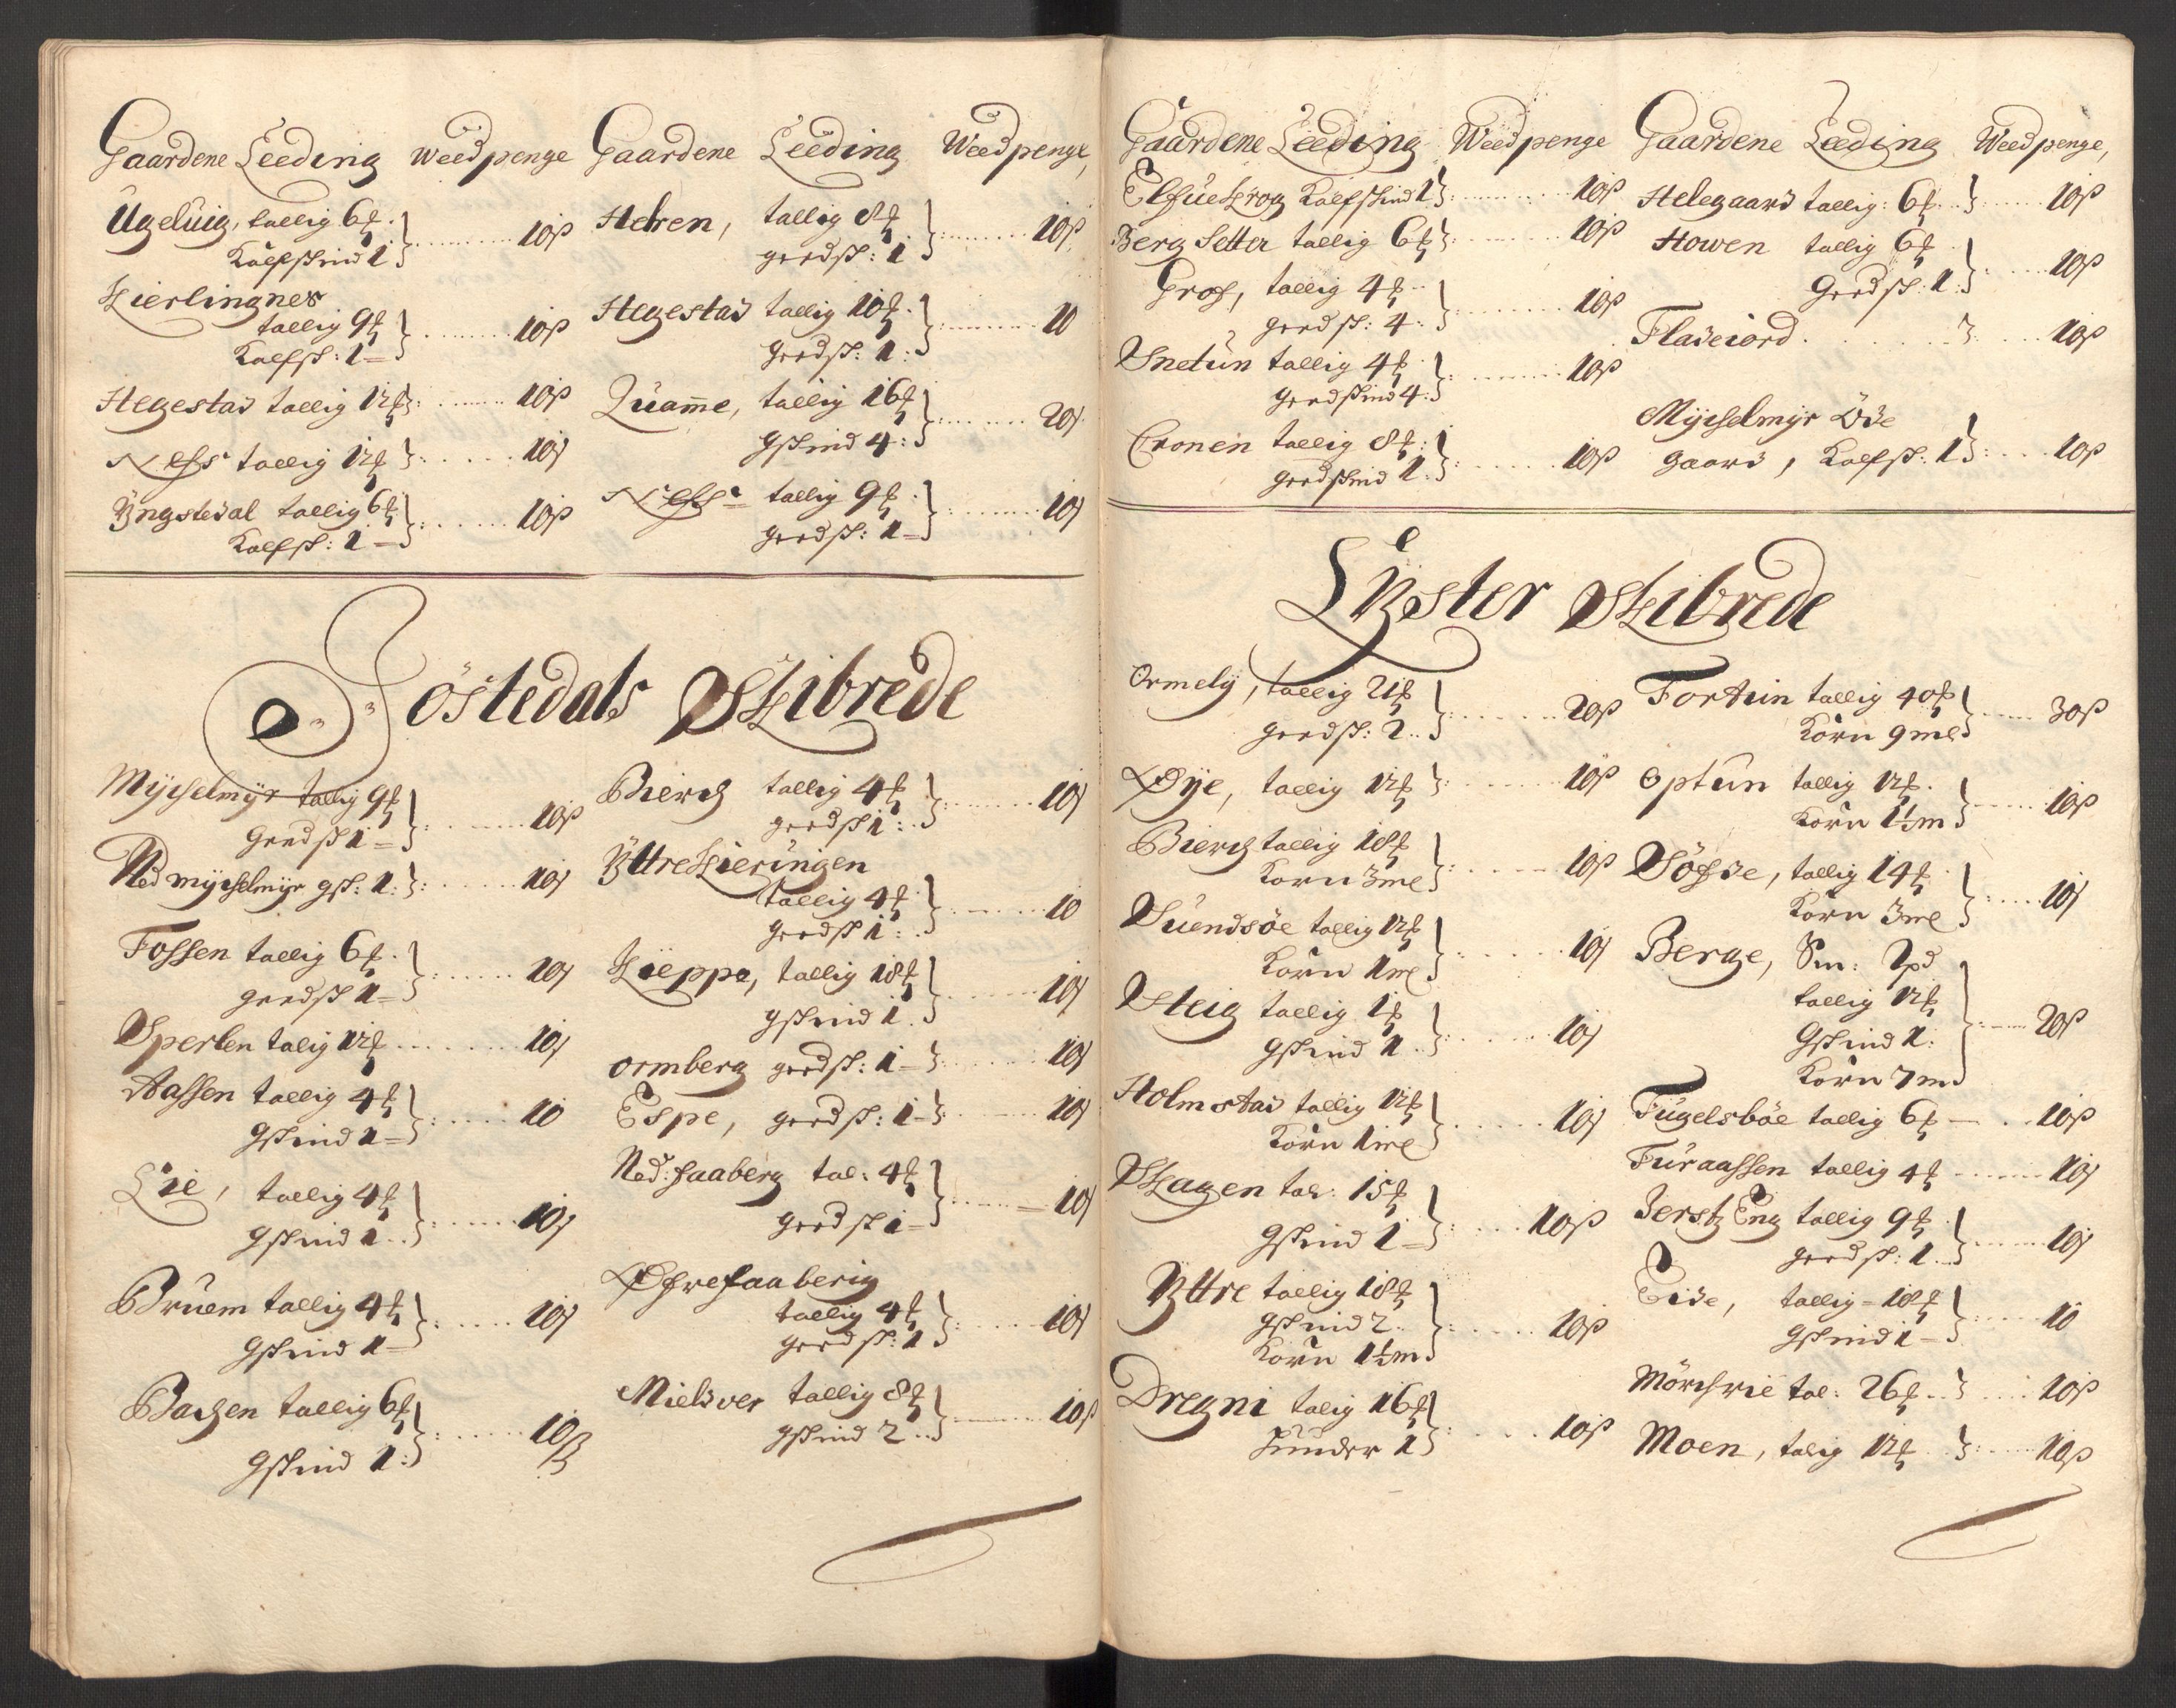 Gaardene Leeding Weedpenge
Ugeluig, tallig 6 ₰
Kalfskind 1 } 10 ß
Kierlingnes
tallig 9 ₰
Kalfsk: 1 } 10 ß
Hegestad tallig 12 ₰ } 10 ß
Ness tallig 12 ₰ } 10 ß
Yngstedal tallig 6 ₰
Kalfsk: 1 } 10 ß
Gaardene Leeding Weedpenge,
Hetren, tallig 8 ₰
geedsk: 1 } 10 ß
Hegestad tallig 10 ₰
geedsk: 1 } 10
Quame, tallig 16 ₰
gskind 4 } 20 ß
Ness tallig 9 ₰
geedsk: 1 } 10 ß
Jöstedals Skibrede
Myckelmyr tallig 9 ₰
Geedsk 1 } 10 ß
Ned myckelmyr gsk: 1 } 10 ß
Fossen tallig 6 ₰
geedsk 1 } 10 ß
Sperlen talig 12 ₰ 10 ß
Aassen tallig 4 ₰
Gskind 1 } 10
Lie, tallig 4 ₰
Gskind 1 } 10 ß
Bruem tallig 4 ₰
Gskind 1 } 10 ß
Bagen tallig 6 ₰
Gskind 1 } 10 ß
Bierg tallig 4 ₰
geedsk 1 } 10 ß
Yttre Kieringen
tallig 4 ₰
geedsk 1 } 10
Kieppe, tallig 18 ₰
gskind 1 } 10 ß
Ormberg geedsk: 1 } 10 ß
Espe, geedsk: 1 } 10 ß
Ned: faaberg tal: 4 ₰
geedsk 1 } 10 ß
Øfre faaberig
tallig 4 ₰
geedsk: 1 } 10 ß
Mielver tallig 8 ₰
gskind 2 } 10 ß
Gaardene Leeding Weedpenge
Elfuekrog Kalfskind 1 } 10 ß
Berg Setter tallig 6 ₰ } 10 ß
Grof, tallig 4 ₰
geedsk: 4 } 10 ß
Snetun tallig 4 ₰
geedskind 4 } 10 ß
Cronen tallig 8 ₰
geedskind 1 } 10 ß
Gaardene Leeding Weedpenge,
Helegaard tallig: 6 ₰ } 10 ß
Howen tallig 6 ₰
Geedsk: 1 } 10 ß
Fladeiord } 10 ß
Myckelmyr Öde
gaard, Kalfsk: 1 } 10 ß
Lÿster Skibrede
Ormely, tallig 21 ₰
geedsk: 2 } 20 ß
Øye, tallig 12 ₰ } 10 ß
Bierg tallig 18 ₰
Korn 3 me } 10 ß
Suendsöe tallig 12 ₰
Korn 1 me } 10 ß
Steig tallig 1 ₰
Gskind 1 } 10 ß
Holmstad tallig 12 ₰
Korn 1 me } 10 ß
Skagen tal: 15 ₰
Gskind 1 } 10 ß
Yttre tallig 18 ₰
gskind 2
Korn 1½ m } 10 ß
Dregni talig 16 ₰
hunder 1 } 10 ß
Fortun tallig 40 ₰
Korn 9 me } 30 ß
Optun tallig 12 ₰
Korn 1½ m } 10 ß
tallig 14 ₰
Korn 3 me } 10 ß
Berge, Sm: 2 pd
tallig 12 ₰
Gskind 1
Korn 7 m } 20 ß
Fugelsböe tallig 6 ₰ 10 ß
Furaassen tallig 4 ₰ 10 ß
Eng tallig 9 ₰
geedsk: 1 } 10 ß
Eide, tallig 18 ₰
gskind 1 } 10
Mörchrie tal: 26 ₰ } 10 ß
Moen, talig 12 ₰ } 10 ß